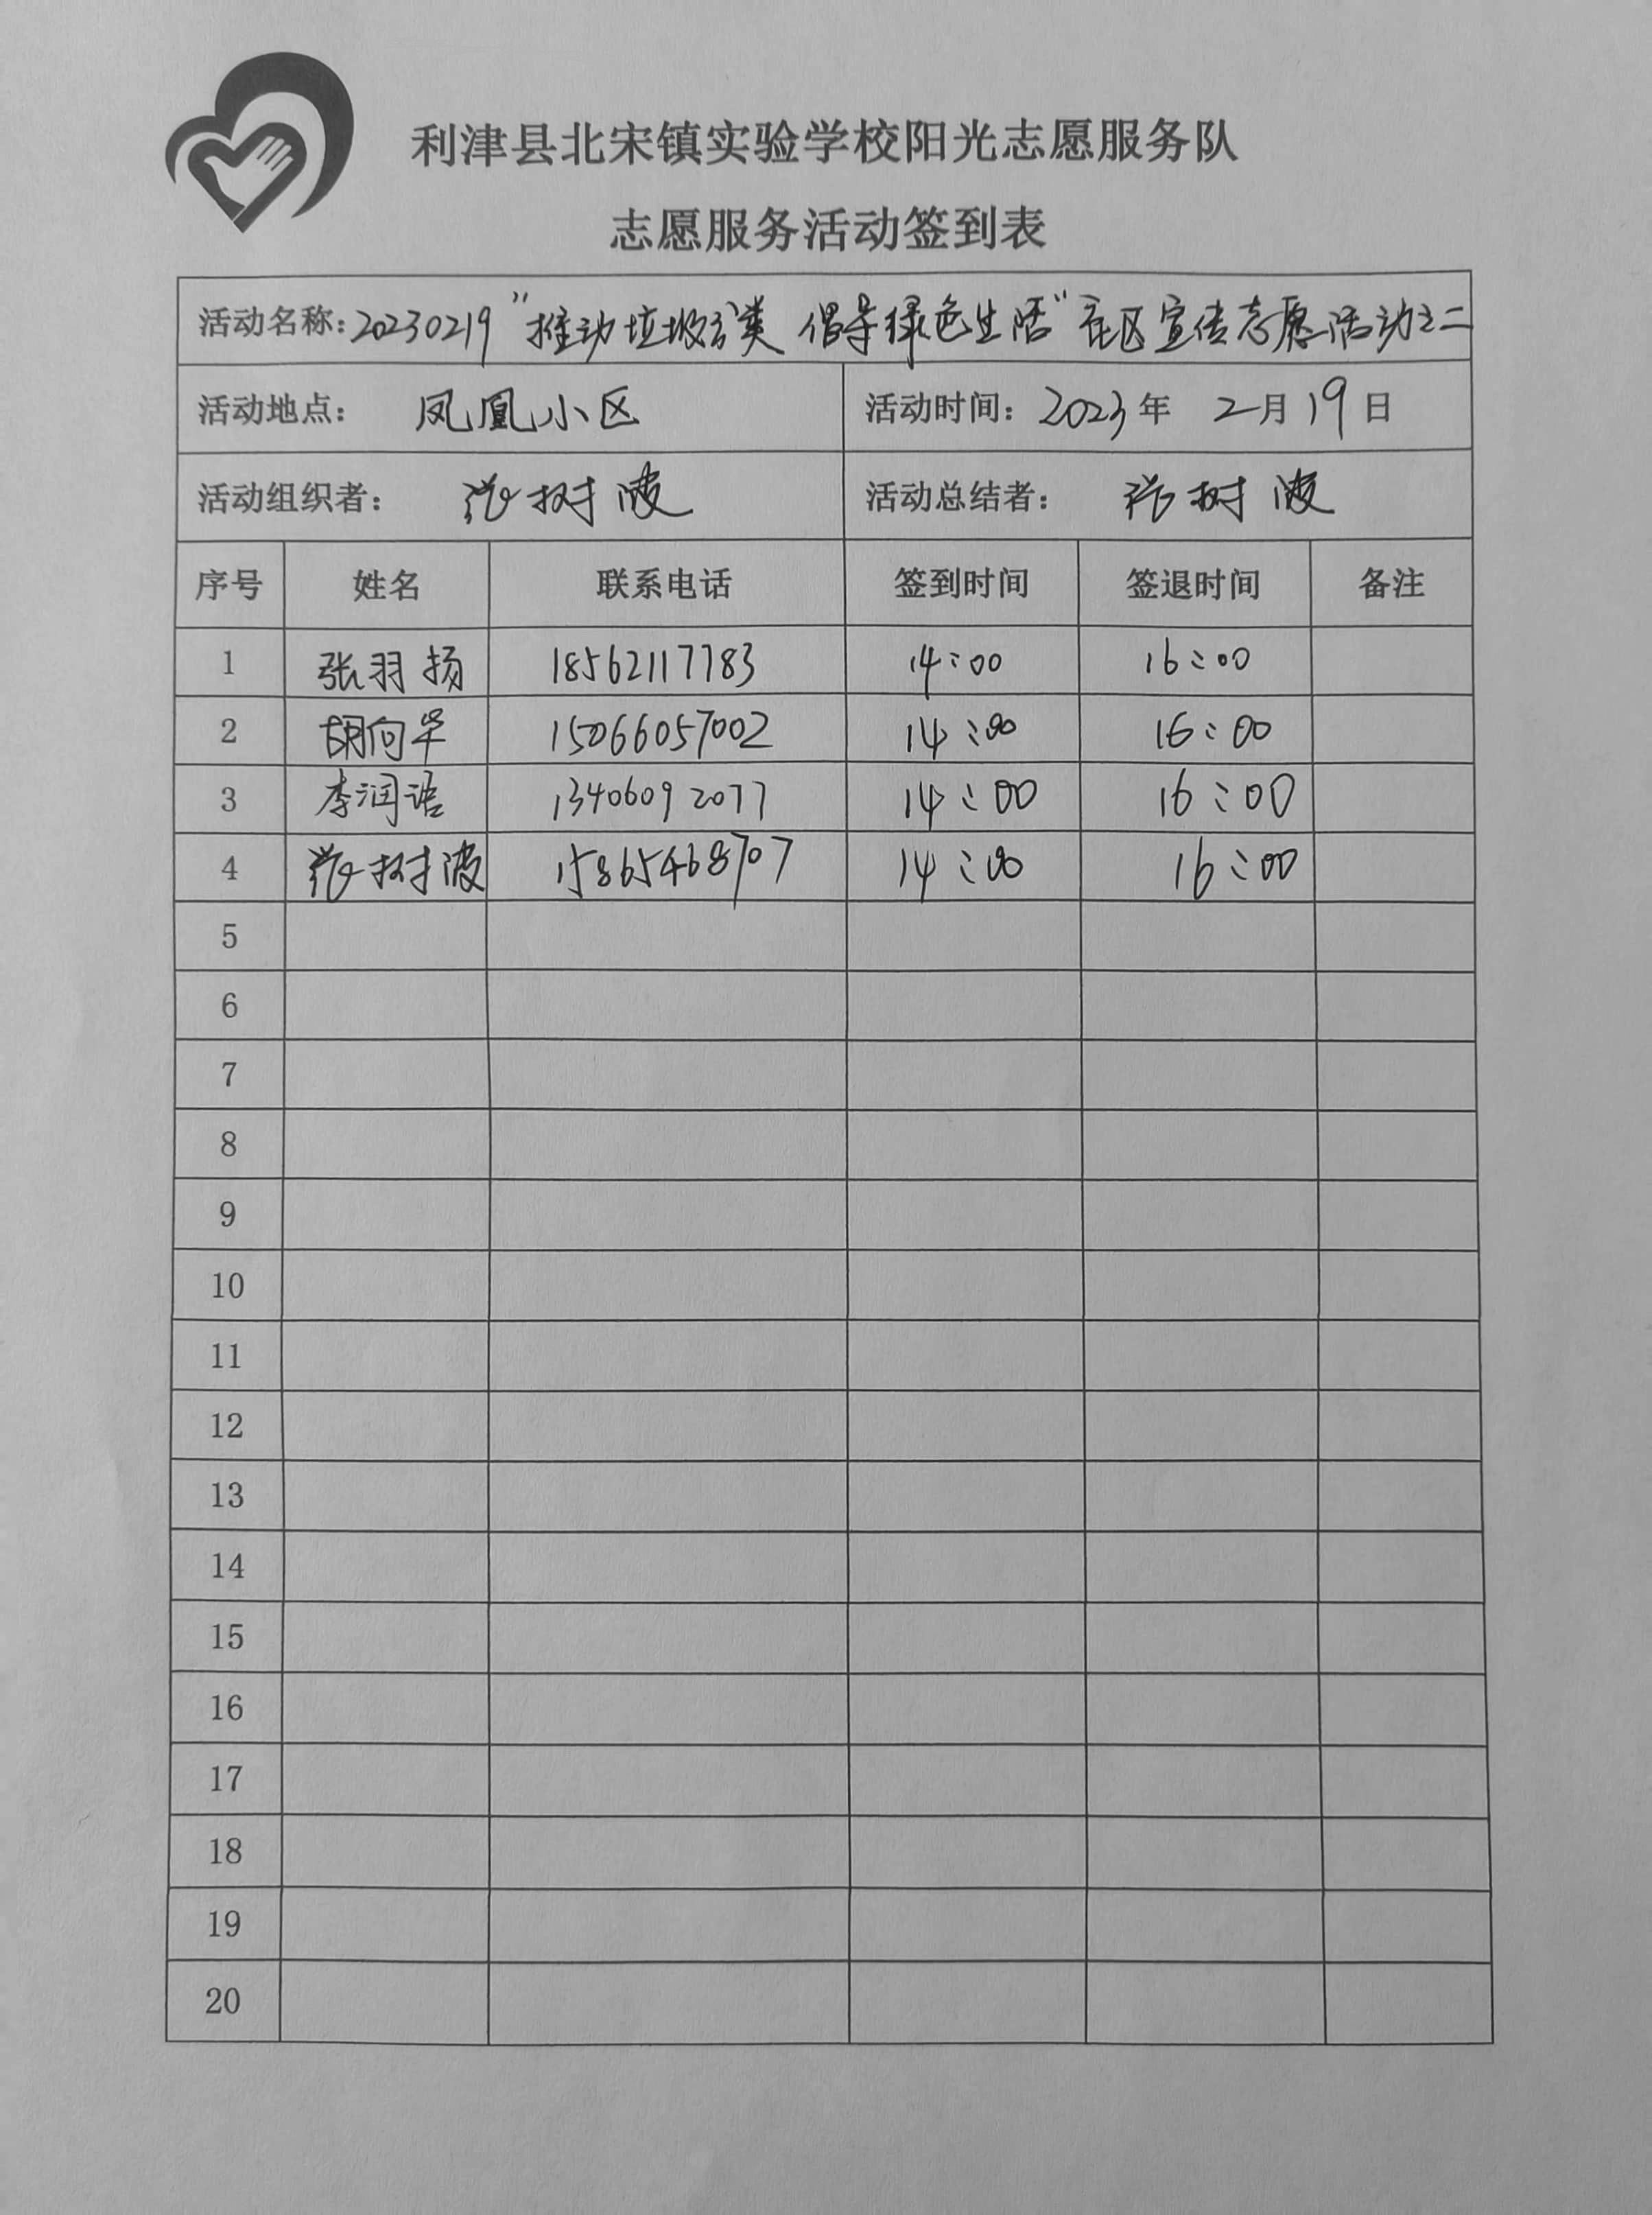 利津县北宋镇实验学校阳光志愿服务队
志愿服务活动签到表
活动名称：20230219"推动垃圾分类 倡导绿色生活"社区宣传志愿活动之二
活动地点： 凤凰小区 活动时间：2023年 2月19日
活动组织者： 张树波 活动总结者： 张树波
序号 姓名 联系电话 签到时间 签退时间 备注
1 张羽扬 18562117783 14:00 16:00
2 胡向华 15066057002 14:00 16:00
3 李润语 13406092077 14:00 16:00
4 张树波 15865468707 14:00 16:00
5
6
7
8
9
10
11
12
13
14
15
16
17
18
19
20